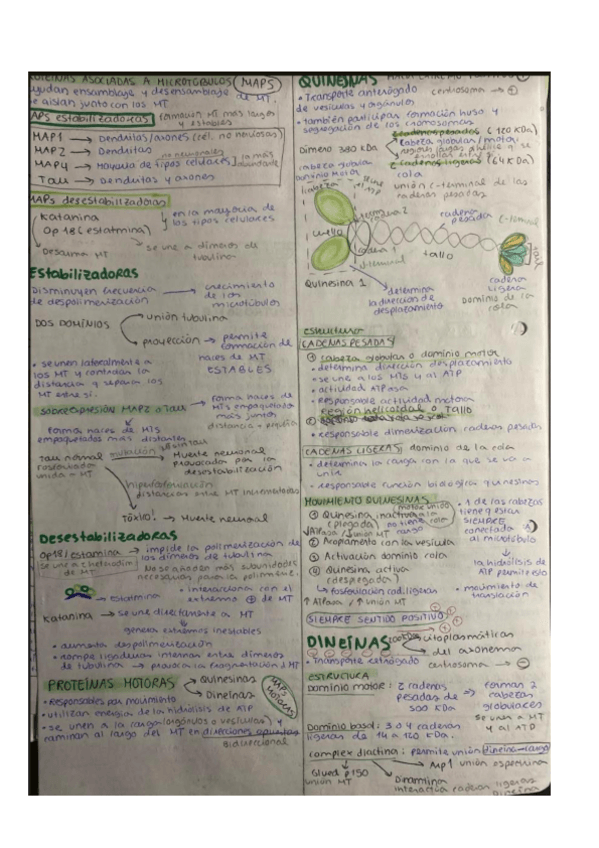 PROTEÍNAS ASOCIADAS A MICROTÚBULOS (MAPS)
ayudan ensamblaje y desensamblaje de MT.
se aislan junto con los MT
MAPS estabilizadoras formación MT más largos
y estables
MAP1 → Dendritas/axones (cél. no nerviosas)
MAP2 → Dendritas
no neuronales
MAP4 → Mayoría de tipos celulares la más abundante
Tau → Dendritas y axones
MAPs desestabilizadoras
Katanina
Op 18 (estatmina)
en la mayoría de
los tipos celulares
Desarma MT
se une a dímeros de
tubulina
Estabilizadoras
Disminuyen frecuencia
de despolimerización
→ crecimiento
de los
microtúbulos
DOS DOMINIOS
unión tubulina
proyección → permite
formación de
haces de MT
ESTABLES
• se unen lateralmente a
los MT y controlan la
distancia y separa los
MT entre sí.
sobreexpresión MAP2 o Tau → forma haces de
MTs empaquetados
más juntos
forma haces de MTs
empaquetados más distantes
Tau normal
unida a MT
mutación
Muerte neuronal
provocada por la
desestabilización
hiperfosforilación
TÓXICO! → Muerte neuronal
Desestabilizadoras
Op18/estamina → impide la polimerización de
los dímeros de tubulina
se une a
de MT
No se añaden más subunidades
necesarias para la polimerz.
→ estatmina
• interacciona con el
extremo + de MT
Katanina → se une directamente a MT
genera extremos inestables
• aumenta despolimerización
• rompe ligaduras internas entre dímeros
de tubulina → provoca la fragmentación d MT
PROTEÍNAS MOTORAS
Quinesinas
Dineínas
MAPS MOTORAS
• Responsables por movimiento
• utilizan energía de la hidrólisis de ATP
• se unen a la carga (orgánulos o vesículas) y
caminan al largo del MT en direcciones opuestas
bidireccional
QUINESINAS
• Transporte anterógado centrosoma → +
de vesículas y orgánulos
• también participan formación huso y
segregación de los cromosomas
Dímero 380 kDa
2 cadenas pesadas (120 KDa)
cabeza globular/motor
2 cadenas ligeras (64 KDa)
cola
unión c-terminal de las
cadenas pesadas
cabeza globular
Dominio Motor
cabeza
cuello
cadena 2
cadena 1
cadena
pesada
C-terminal
tallo
cola
Quinesina 1
determina
la dirección de
desplazamiento
cadena
ligera
Dominio de la
cola
estructura
CADENAS PESADAS
① Cabeza globular o dominio motor
• determina dirección desplazamiento
• se une a los MTs y al ATP
• actividad ATPasa
• Responsable actividad motora
② Región helicoidal o TALLO
• responsable dimerización cadenas pesadas
CADENAS LIGERAS dominio de la cola
• determina la carga con la que se va a
unir
• responsable función biológica quinesinas
MOVIMIENTO QUINESINAS
① Quinesina inactiva
(plegada)
② Acoplamiento con la vesícula
③ Activación dominio cola
④ Quinesina activa
(desplegada)
↳ fosforilación cad. ligeras
↑ ATPasa / ↑ unión MT
• 1 de las cabezas
tiene q estar
SIEMPRE
conectada
al microtúbulo
la hidrólisis de
ATP permite esto
• movimiento de
translación
SIEMPRE SENTIDO POSITIVO
DINEÍNAS
citoplasmáticas
del axonema
• Transporte retrógado centrosoma → -
ESTRUCTURA
Dominio motor: 2 cadenas
pesadas de
500 KDa
→ forman 2
cabezas
globulares
se unen a MT
y al ATP
Dominio basal: 3 o 4 cadenas
ligeras de 14 a 120 KDa.
complejo diactina: permite unión dineína-carga
Glued p150
unión MT
Dinamitina
interactúa cadenas ligeras
dineína
Arp1 unión espectrina